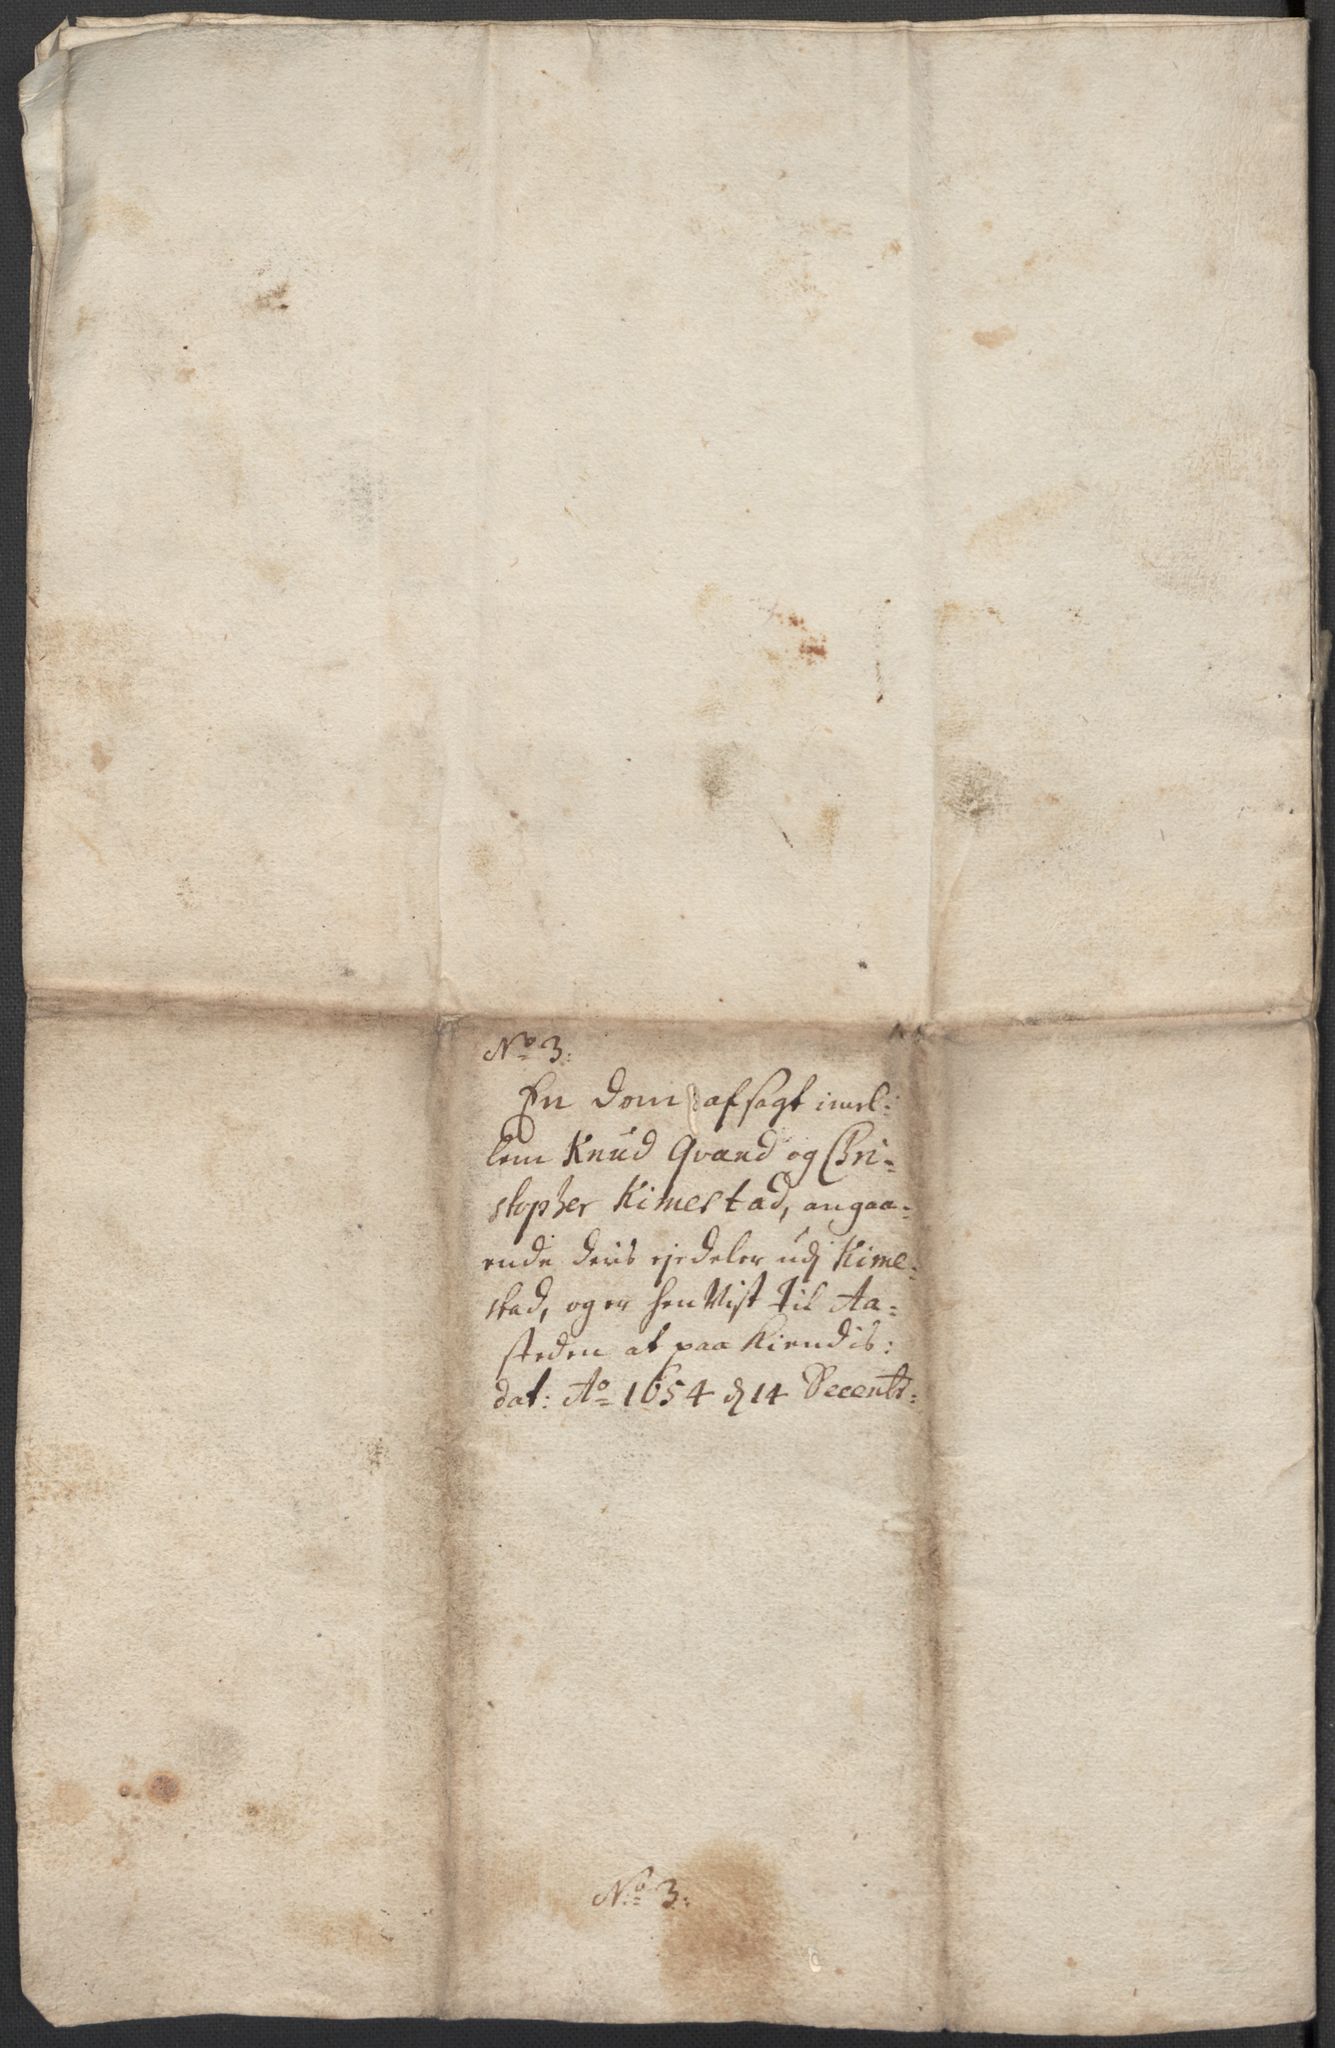 No 3:
En Dom afsagt imel:
lem Knud Qvand og Chri-
stopher Kimestad, angaa-
ende deris ejedeler udj Kime-
stad, og er hen Vist Til Aa-
steden at paa Kiendis:
dat: Ao 1654 d 14 Decembr:
No 3: